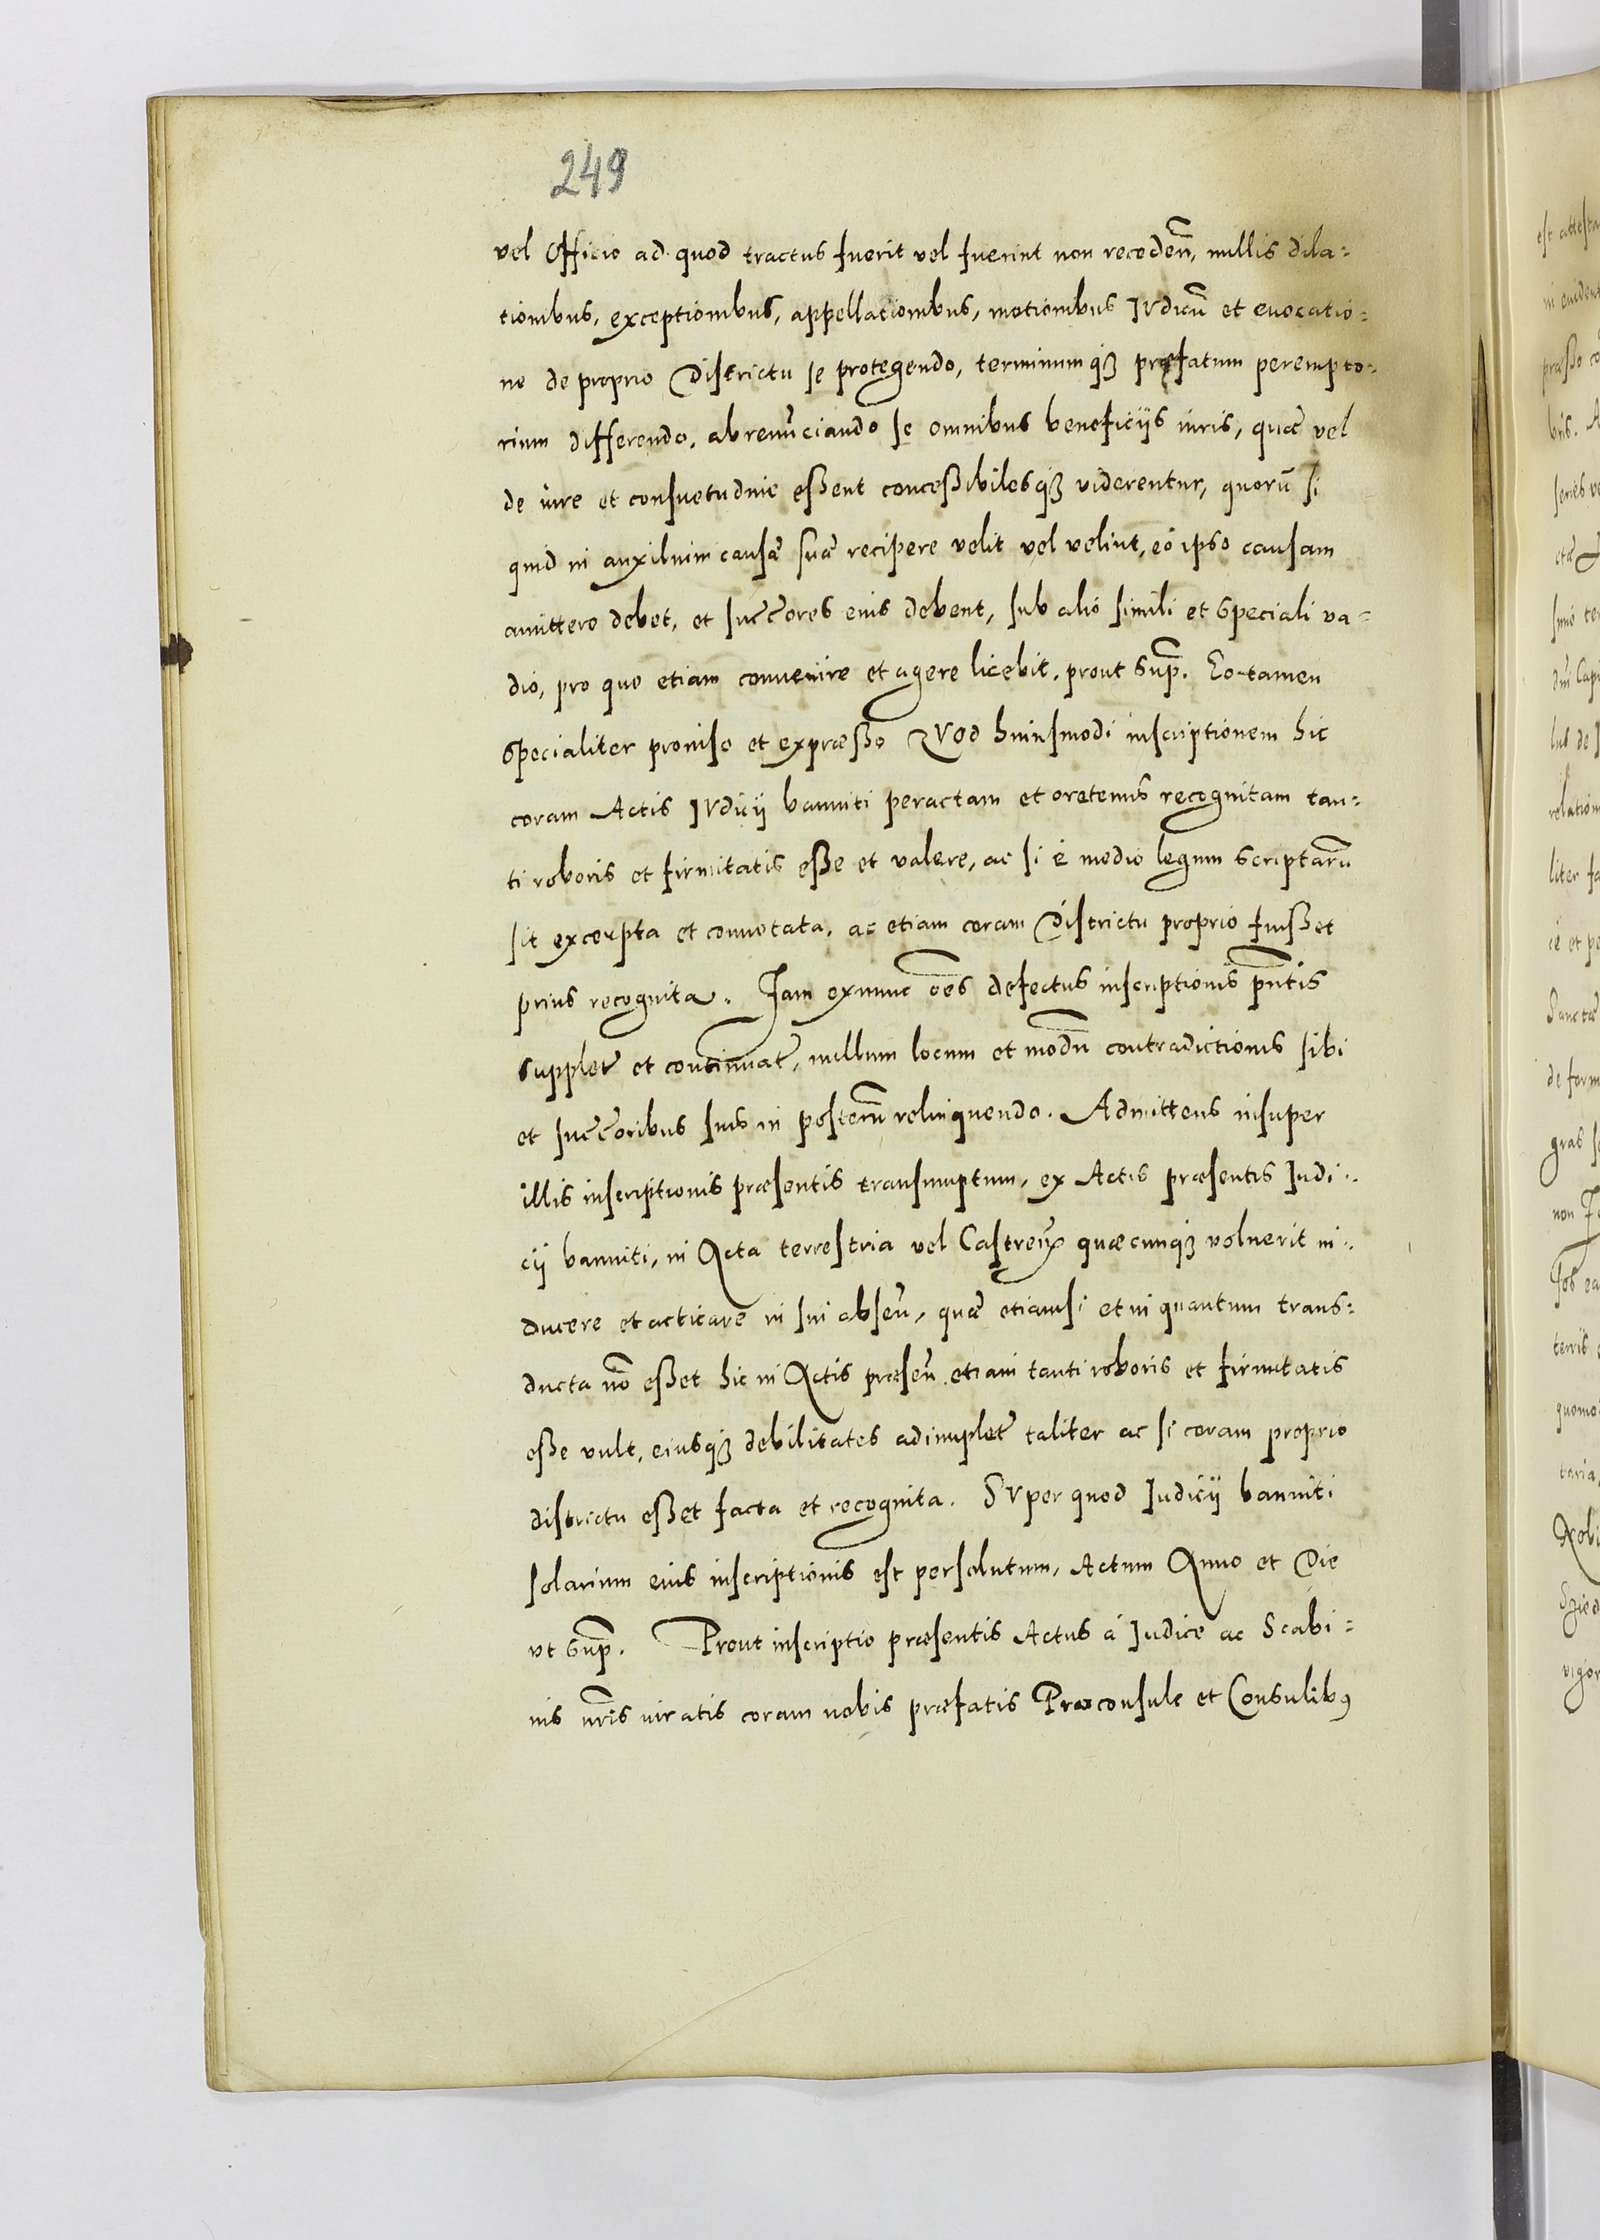 249
vel Officio ad quod tractus fuerit vel fuerint non recedeñ, nullis dila=
tionibus, exceptionibus, appellationibus, motionibus IVdicũ et euocatio=
ne de proprio Districtu se protegendo, terminumqȝ præfatum perempto=
rium differendo, abrenũciando se omnibus beneficijs iuris, quæ vel
de iure et consuetudine eßent conceßibilesqȝ viderentur, quorũ si
quid in auxilium causæ suæ recipere velit vel velint, eò ipso causam
amittere debet, et succ̃ores eius debent, sub alio simili et speciali va=
dio, pro quo etiam conuenire et agere licebit, prout sup̃. Eo tamen
specialiter prouiso et expræßo QVod huiusmodi inscriptionem hic
coram Actis IVdicij banniti peractam et oretenus recognitam tan=
ti roboris et firmitatis eße et valere, ac si è medio legum scriptarũ
sit excerpta et connotata, ac etiam coram Districtu proprio fuißet
prius recognita. Iam exnunc oẽs defectus inscriptionis pñtis
supplet et continuat, nullum locum et modũ contradictionis sibi
et succ̃oribus suis in posterũ relinquendo. Admittens insuper
illis inscriptionis præsentis transumptum, ex Actis præsentis Iudi=
cij banniti, in Acta terrestria vel Castreñ quæcunqȝ voluerit in=
ducere et acticare in sui abseñ, quæ etiamsi et in quantum trans=
ducta nõ eßet hic in Actis præseñ etiam tanti roboris et firmitatis
eße vult, eiusqȝ debilitates adimplet taliter ac si coram proprio
districtu eßet facta et recognita. SVper quod Iudicij banniti
solarium eius inscriptionis est persolutum, Actum Anno et Die
vt sup̃. Prout inscriptio præsentis Actus à Iudice ac Scabi=
nis ñris iuratis coram nobis præfatis Præconsule et Consulibꝰ